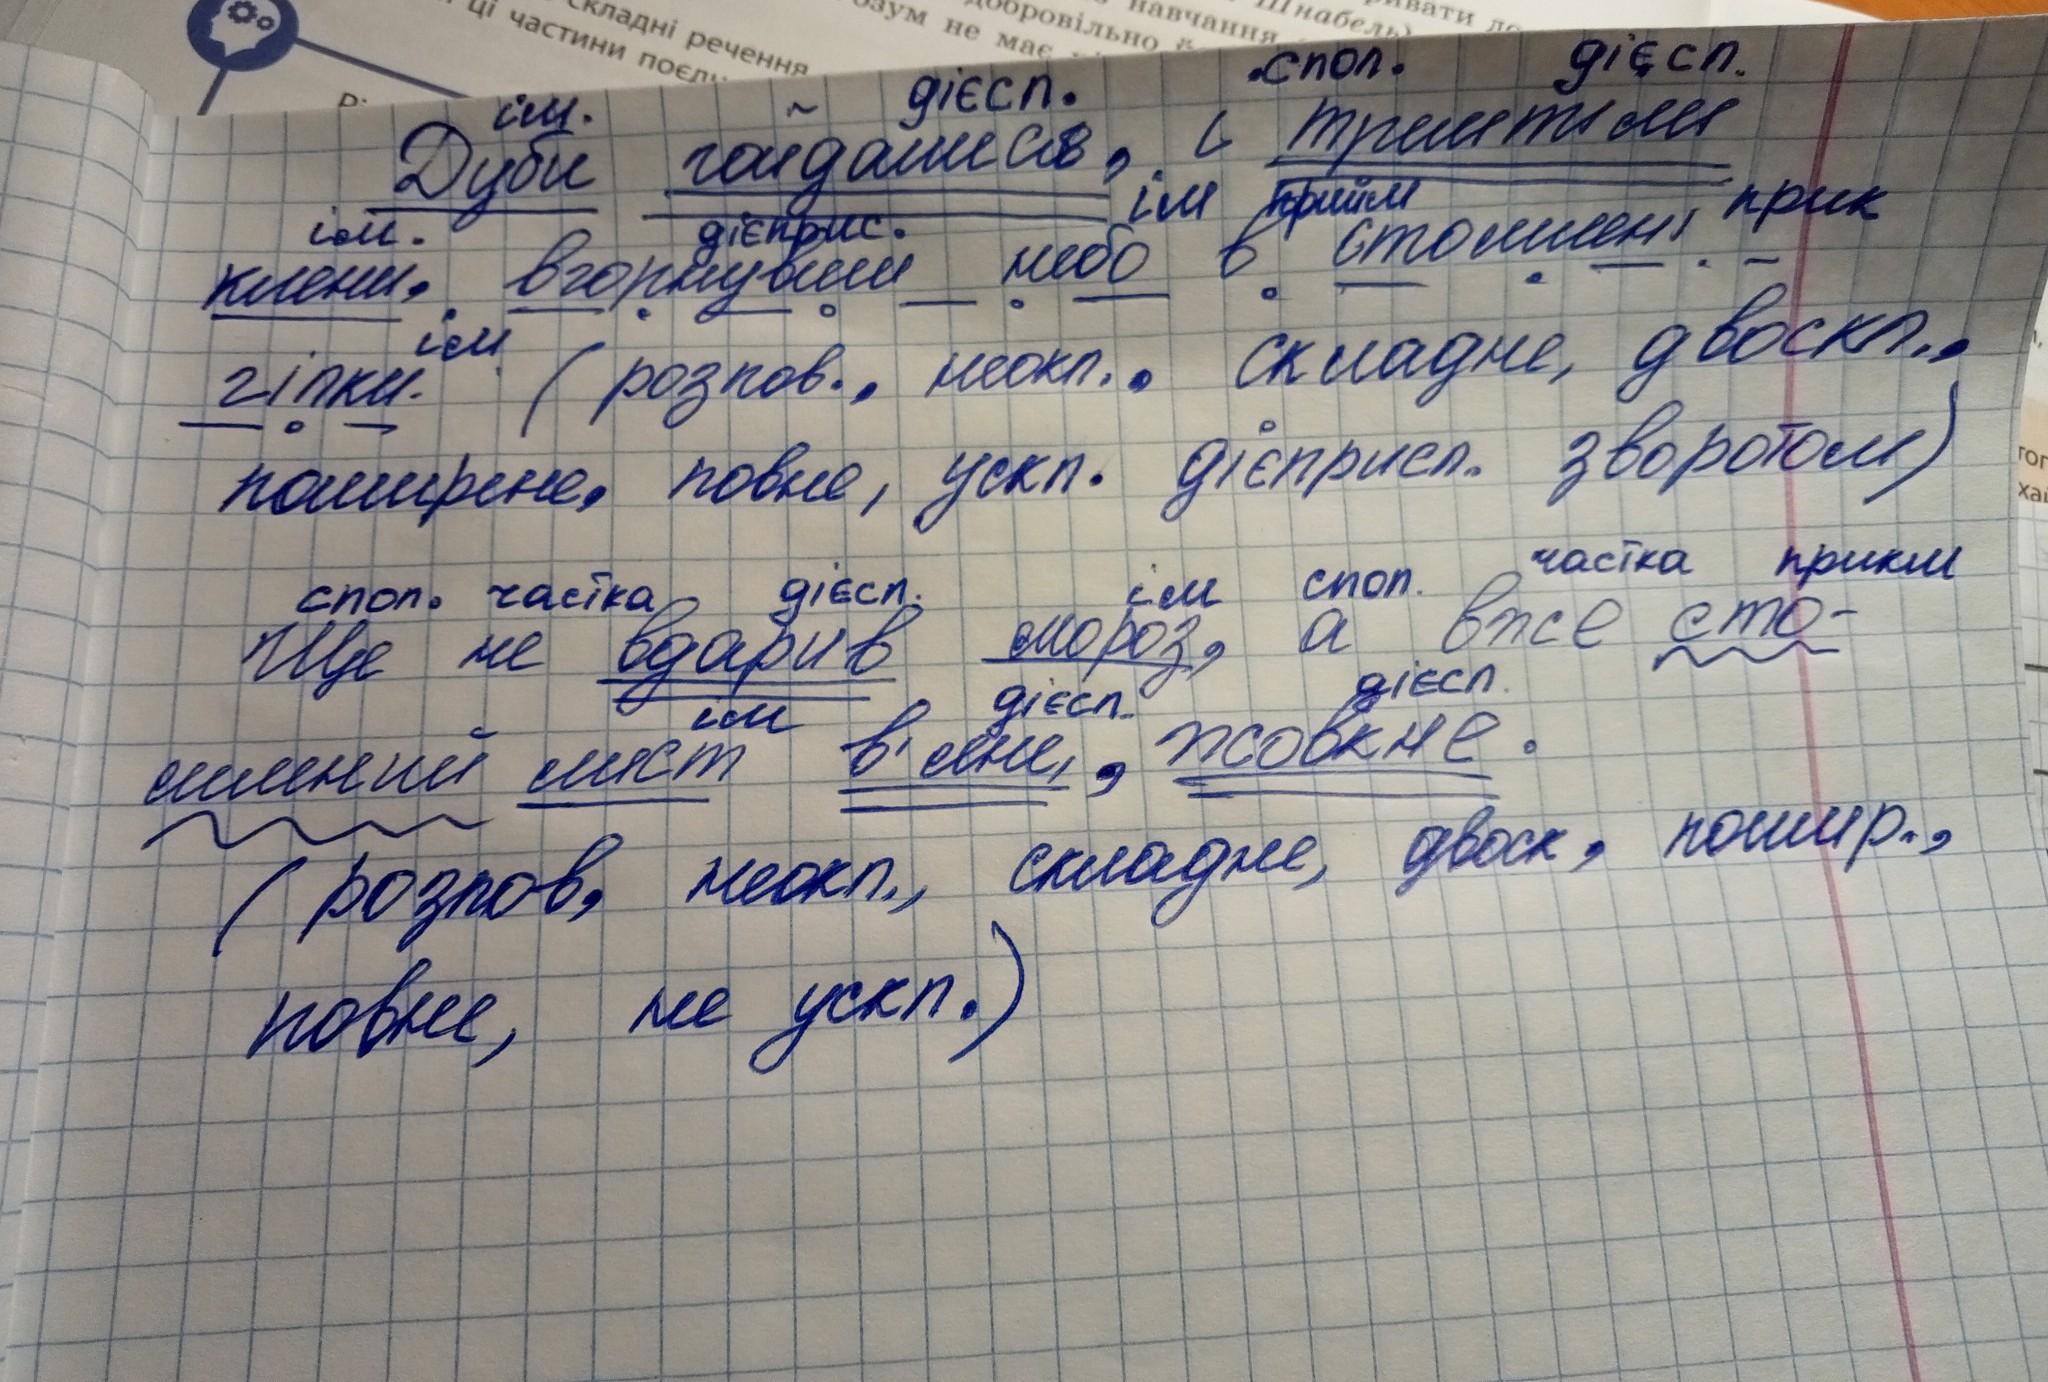 складні речення
ці частини поєдн
розум не має
добровільно й
навчання
Шнабель)
ім. дієсп. спол. дієсп.
Дуби гойдались, і тремтіли
ім. дієприс. ім прийм прик
клени, вгорнувши небо в стомлені
ім
гілки. (розпов., неокл., складне, двоскл.,
поширене, повне, ускл. дієприсл. зворотом)
спол. частка дієсл. ім спол. частка прикм
Ще не вдарив мороз, а вже сто-
ім дієсл. дієсл.
млений лист в'яне, жовкне.
(розпов, неокл., складне, двоск, пошир.,
повне, не ускл.)